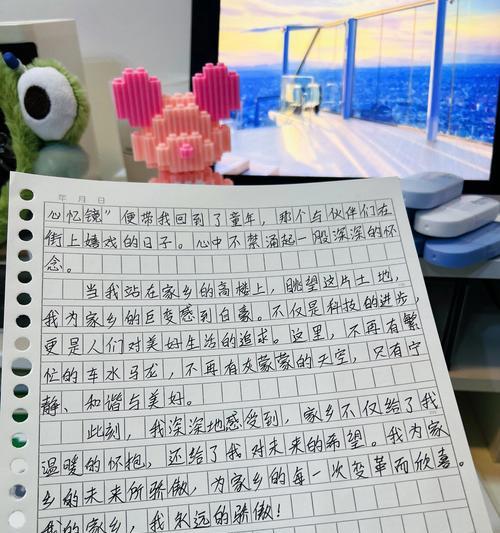 年 月 日
心忆镜”便带我回到了童年，那个与伙伴们在
街上嬉戏的日子。心中不禁涌起一股深深的怀
念。
当我站在家乡的高楼上，眺望这片土地，
我为家乡的巨变感到自豪。不仅是科技的进步，
更是人们对美好生活的追求。这里，不再有繁
忙的车水马龙，不再有灰蒙蒙的天空，只有宁
静、和谐与美好。
此刻，我深深地感受到，家乡不仅给了我
温暖的怀抱，还给了我对未来的希望。我为家
乡的未来所骄傲，为家乡的每一次变革而欣喜。
我的家乡，我永远的骄傲！